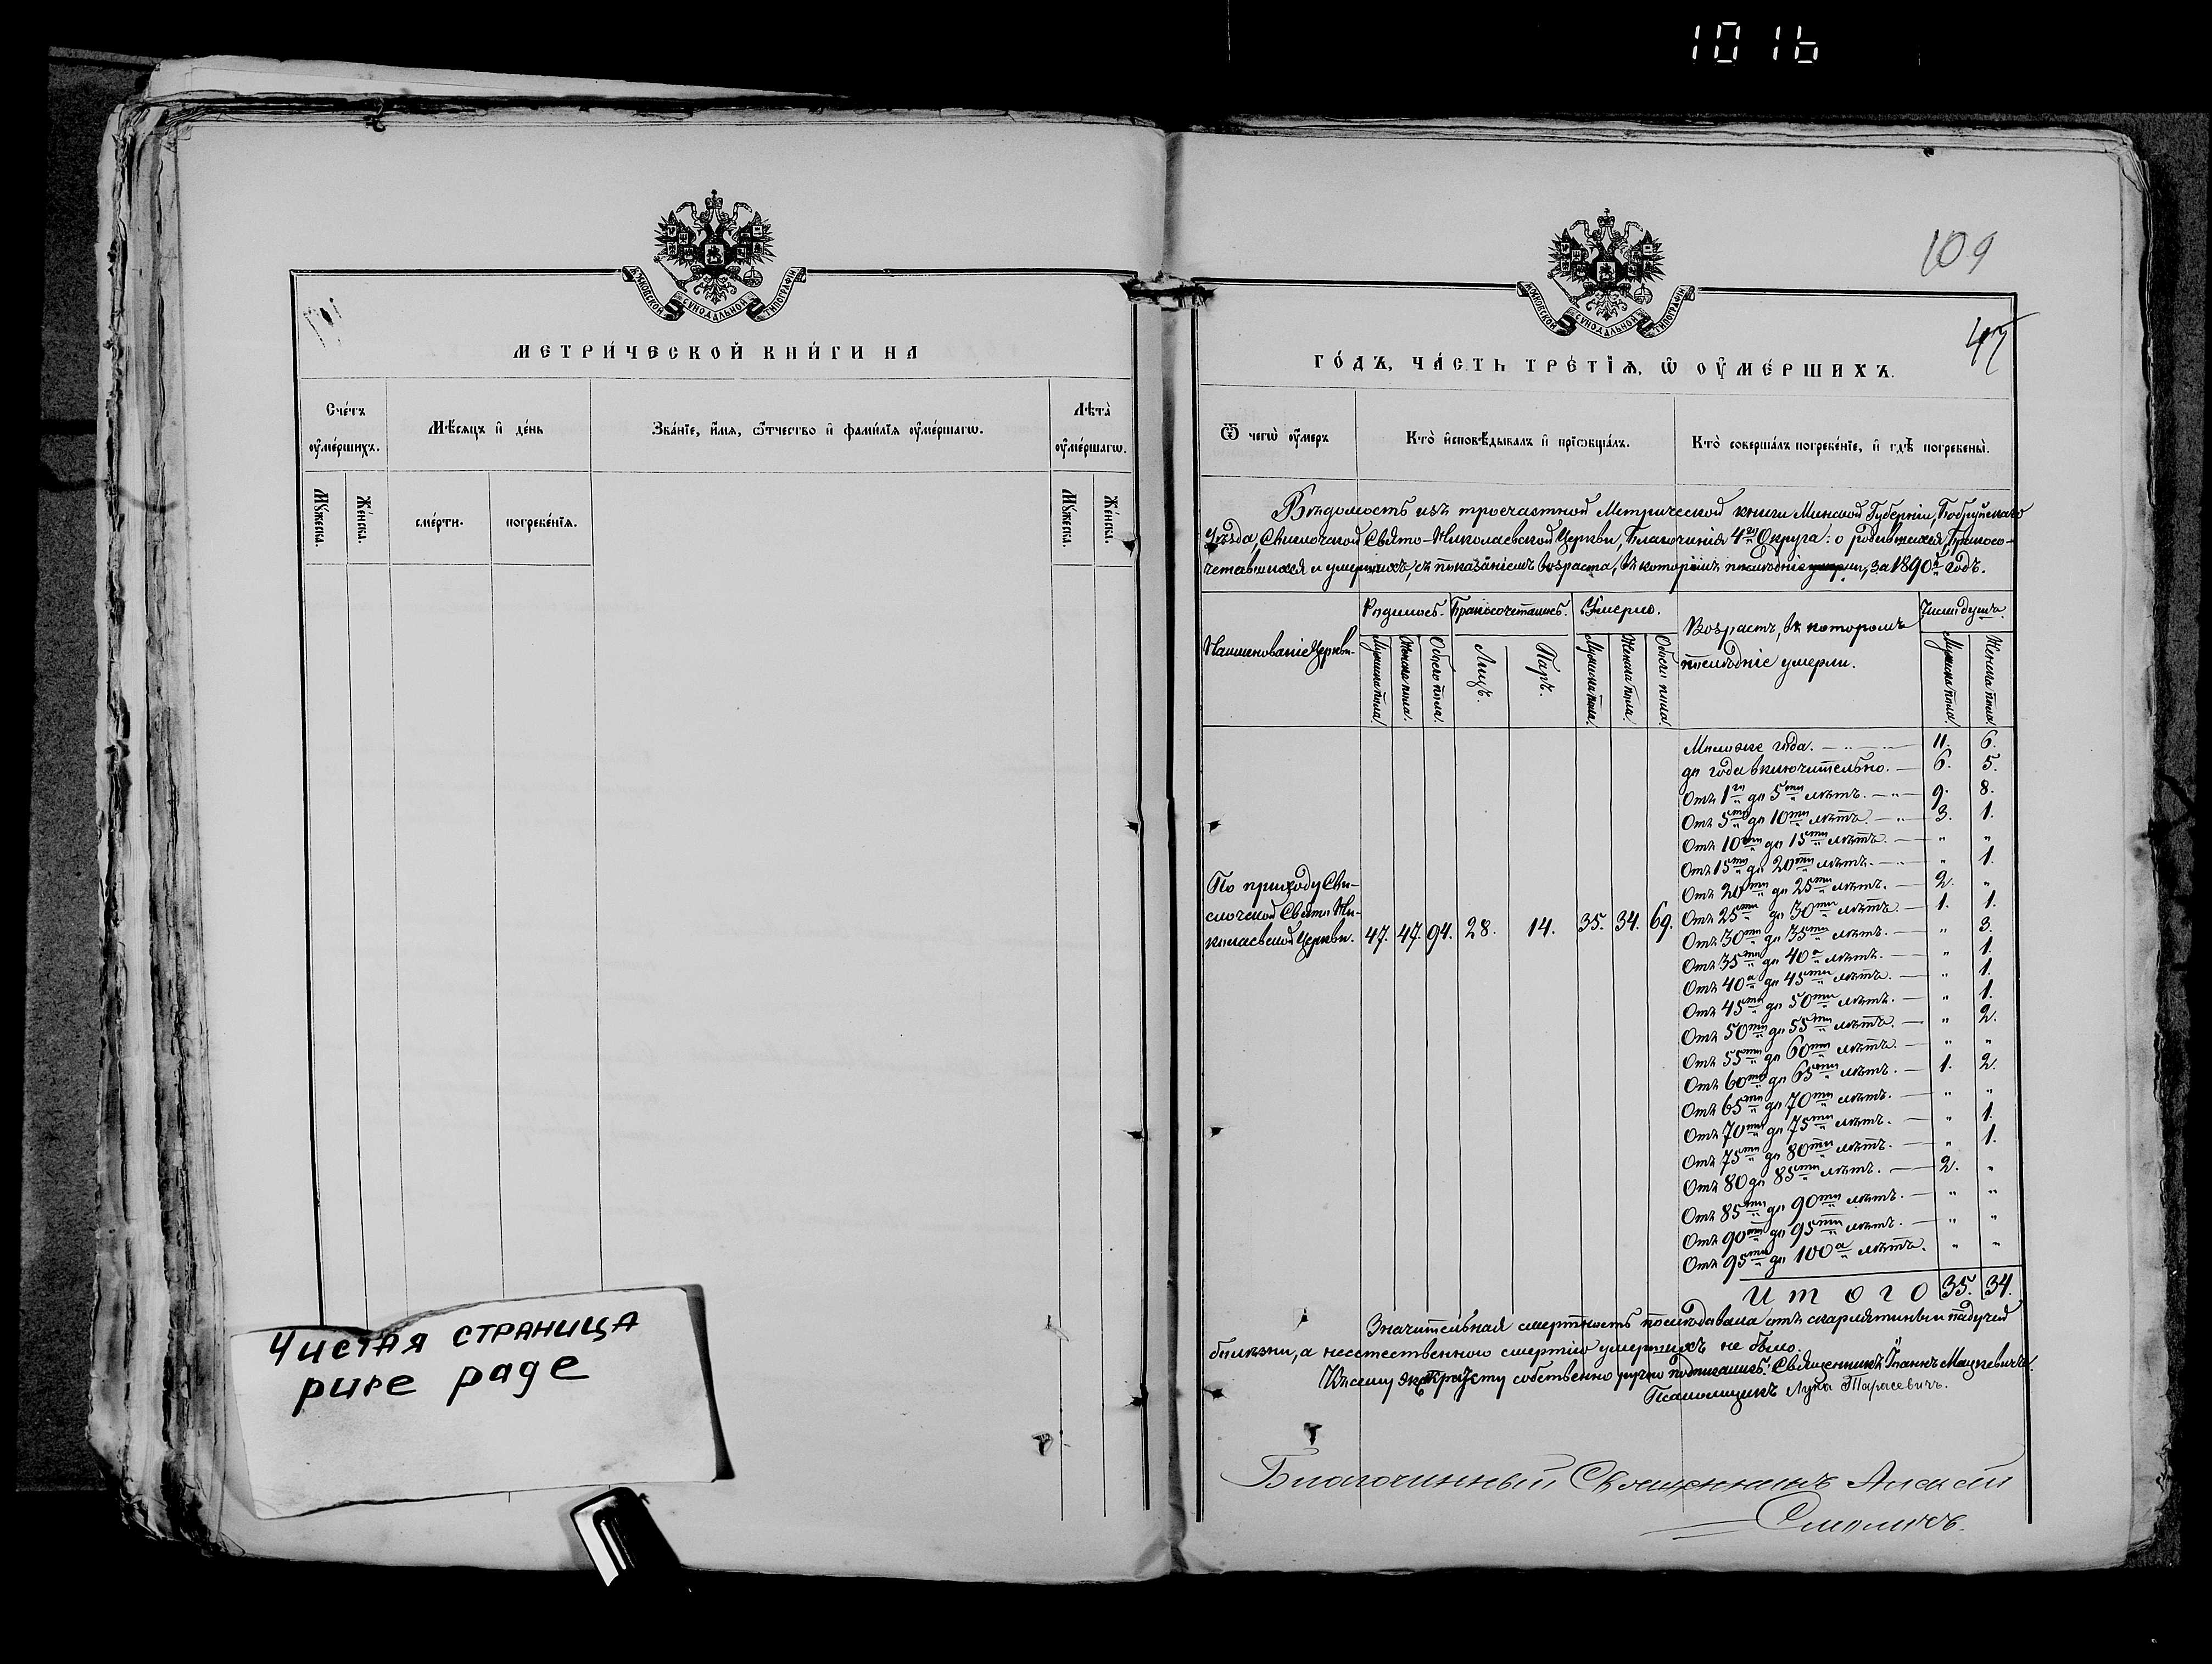 1016
МОСКОВСКОЙ СѴНОДАЛЬНОЙ ТИПОГРАФІИ
МЕТРИ́ЧЕСКОЙ КНИ́ГИ НА
Сче́тъ оу҆ме́ршихъ.
Мѣ́сяцъ и҆ де́нь
Зва́нїе, и҆́мя, ѻ҆́тчество и҆ фами́лїя оу҆ме́ршагѡ.
Лѣта̀ оу҆ме́ршагѡ.
Мꙋ́жеска.
Же́нска.
сме́рти.
погребе́нїя.
Мꙋ́жеска.
Же́нска.
Чистая страница
pure page
109
МОСКОВСКОЙ СѴНОДАЛЬНОЙ ТИПОГРАФІИ
ГО́ДЪ, ЧА́СТЬ ТРЕ́ТЇѦ, Ѡ҆ ОУ҆МЕ́РШИХЪ.
Ѿ чегѡ̀ оу҆́меръ
Кто̀ и҆сповѣ́дывалъ и҆ прїѡбща́лъ.
Кто̀ соверша́лъ погребе́нїе, и҆ гдѣ̀ погребены̀.
Вѣдомость изъ троечастной Метрической книги Минской Губерніи, Бобруйскаго
Уѣзда, Свислочской Свято-Николаевской Церкви, Благочинія 4го Округа: о родившихся, бракосо-
четавшихся и умершихъ, съ показаніемъ возраста, въ которомъ послѣдніе умерли, за 1890й годъ.
Наименованіе Церкви.
Родилось.
Бракосочеталось.
Умерло.
Возрастъ, въ которомъ
послѣдніе умерли.
Число душъ.
Мужска пола.
Женска пола.
Обоего пола.
Лицъ.
Паръ.
Мужска пола.
Женска пола.
Обоего пола.
Мужска пола.
Женска пола.
По приходу Сви-
слочской Свято-Ни-
колаевской Церкви.
47. 47. 94. 28. 14. 35. 34. 69.
Моложе года. 11. 6.
до года включительно. 6. 5.
Отъ 1го до 5ти лѣтъ. 9. 8.
Отъ 5ти до 10ти лѣтъ. 3. 1.
Отъ 10ти до 15ти лѣтъ. " "
Отъ 15ти до 20ти лѣтъ. " 1.
Отъ 20ти до 25ти лѣтъ. 2. "
Отъ 25ти до 30ти лѣтъ. 1. 1.
Отъ 30ти до 35ти лѣтъ. " 3.
Отъ 35ти до 40а лѣтъ. " 1.
Отъ 40а до 45ти лѣтъ. " 1.
Отъ 45ти до 50ти лѣтъ. " 1.
Отъ 50ти до 55ти лѣтъ. " 2.
Отъ 55ти до 60ти лѣтъ. " "
Отъ 60ти до 65ти лѣтъ. 1. 2.
Отъ 65ти до 70ти лѣтъ. " "
Отъ 70ти до 75ти лѣтъ. " 1.
Отъ 75ти до 80ти лѣтъ. " 1.
Отъ 80 до 85ти лѣтъ. 2. "
Отъ 85ти до 90ти лѣтъ. " "
Отъ 90ти до 95ти лѣтъ. " "
Отъ 95ти до 100а лѣтъ. " "
Итого 35. 34.
Значительная смертность послѣдовала отъ скарлятины и падучей
болѣзни, а неестественною смертію умершихъ не было.
Къ сему экстракту собственноручно подписались: Священникъ Іоаннъ Мацкевичъ.
Псаломщикъ Лука Тарасевичъ.
Благочинный Священникъ Алексій
Смоличъ.